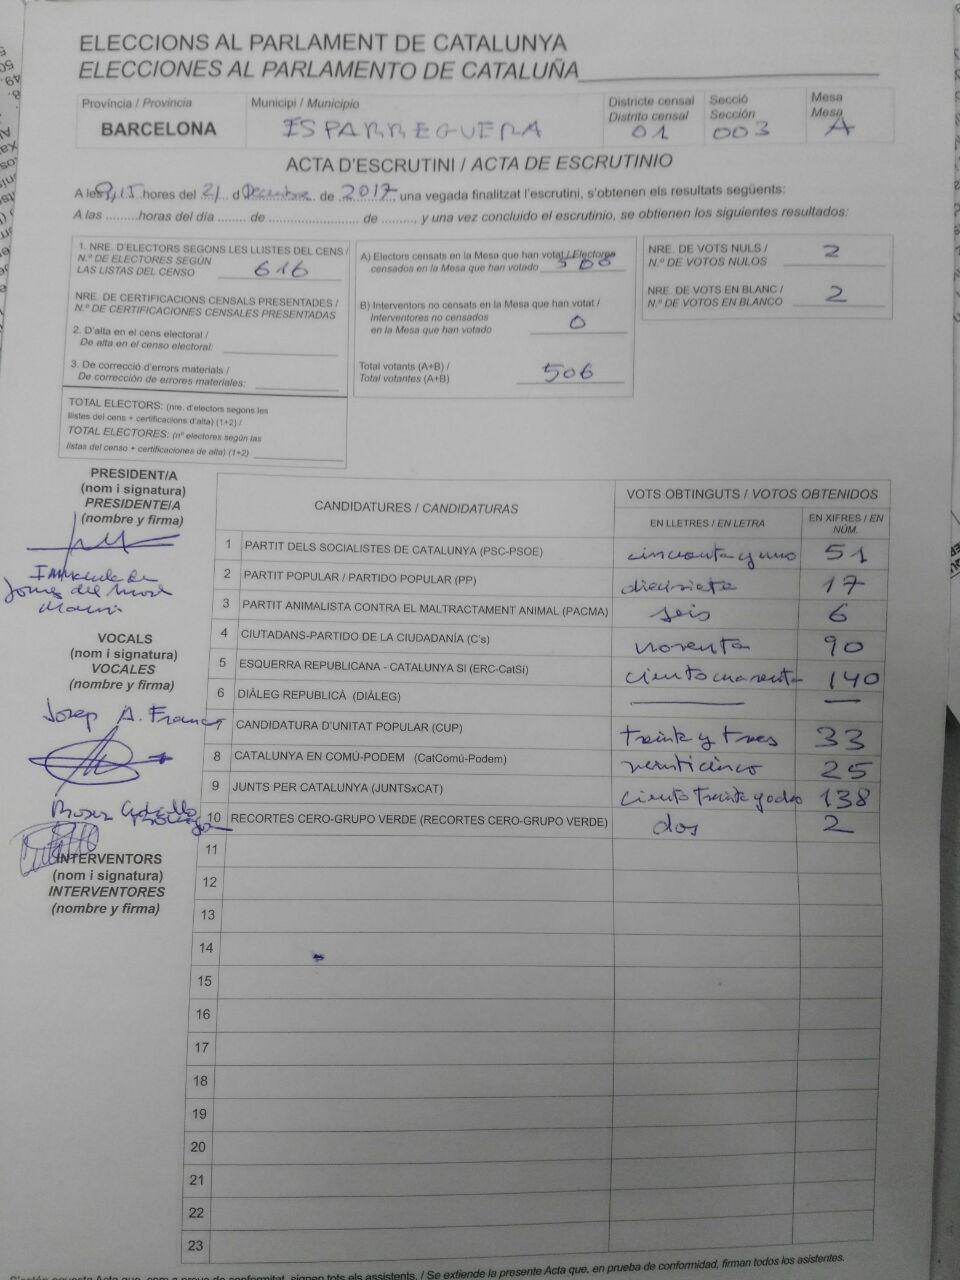 ELECCIONS AL PARLAMENT DE CATALUNYA
ELECCIONES AL PARLAMENTO DE CATALUÑA
Província / Provincia
BARCELONA
Municipi / Municipio
ESPARREGUERA
Districte censal
Distrito censal
01
Secció
Sección
003
Mesa
Mesa
A
ACTA D'ESCRUTINI / ACTA DE ESCRUTINIO
A les 9,15 hores del 21 d Decembre de 2017, una vegada finalitzat l'escrutini, s'obtenen els resultats següents:
A las ......... horas del día ........ de ........................ de ........., y una vez concluido el escrutinio, se obtienen los siguientes resultados:
1. NRE. D'ELECTORS SEGONS LES LLISTES DEL CENS /
N.º DE ELECTORES SEGÚN
LAS LISTAS DEL CENSO 616
NRE. DE CERTIFICACIONS CENSALS PRESENTADES /
N.º DE CERTIFICACIONES CENSALES PRESENTADAS
2. D'alta en el cens electoral /
De alta en el censo electoral:
3. De correcció d'errors materials /
De corrección de errores materiales:
TOTAL ELECTORS: (nre. d'electors segons les
llistes del cens + certificacions d'alta) (1+2) /
TOTAL ELECTORES: (nº electores según las
listas del censo + certificaciones de alta) (1+2)
A) Electors censats en la Mesa que han votat / Electores
censados en la Mesa que han votado
B) Interventors no censats en la Mesa que han votat /
Interventores no censados
en la Mesa que han votado 0
Total votants (A+B) /
Total votantes (A+B) 506
NRE. DE VOTS NULS /
N.º DE VOTOS NULOS 2
NRE. DE VOTS EN BLANC /
N.º DE VOTOS EN BLANCO 2
PRESIDENT/A
(nom i signatura)
PRESIDENTE/A
(nombre y firma)
VOCALS
(nom i signatura)
VOCALES
(nombre y firma)
Josep A. Franco
INTERVENTORS
(nom i signatura)
INTERVENTORES
(nombre y firma)
CANDIDATURES / CANDIDATURAS
VOTS OBTINGUTS / VOTOS OBTENIDOS
EN LLETRES / EN LETRA
EN XIFRES / EN NÚM.
1 PARTIT DELS SOCIALISTES DE CATALUNYA (PSC-PSOE) cincuenta y uno 51
2 PARTIT POPULAR / PARTIDO POPULAR (PP) diecisiete 17
3 PARTIT ANIMALISTA CONTRA EL MALTRACTAMENT ANIMAL (PACMA) seis 6
4 CIUTADANS-PARTIDO DE LA CIUDADANÍA (C's) noventa 90
5 ESQUERRA REPUBLICANA - CATALUNYA SI (ERC-CatSí) ciento cuarenta 140
6 DIÀLEG REPUBLICÀ (DIÀLEG) — —
7 CANDIDATURA D'UNITAT POPULAR (CUP) treinta y tres 33
8 CATALUNYA EN COMÚ-PODEM (CatComú-Podem) veinticinco 25
9 JUNTS PER CATALUNYA (JUNTSxCAT) ciento treinta y ocho 138
10 RECORTES CERO-GRUPO VERDE (RECORTES CERO-GRUPO VERDE) dos 2
11
12
13
14
15
16
17
18
19
20
21
22
23
S'estén aquesta Acta que, com a prova de conformitat, signen tots els assistents. / Se extiende la presente Acta que, en prueba de conformidad, firman todos los asistentes.